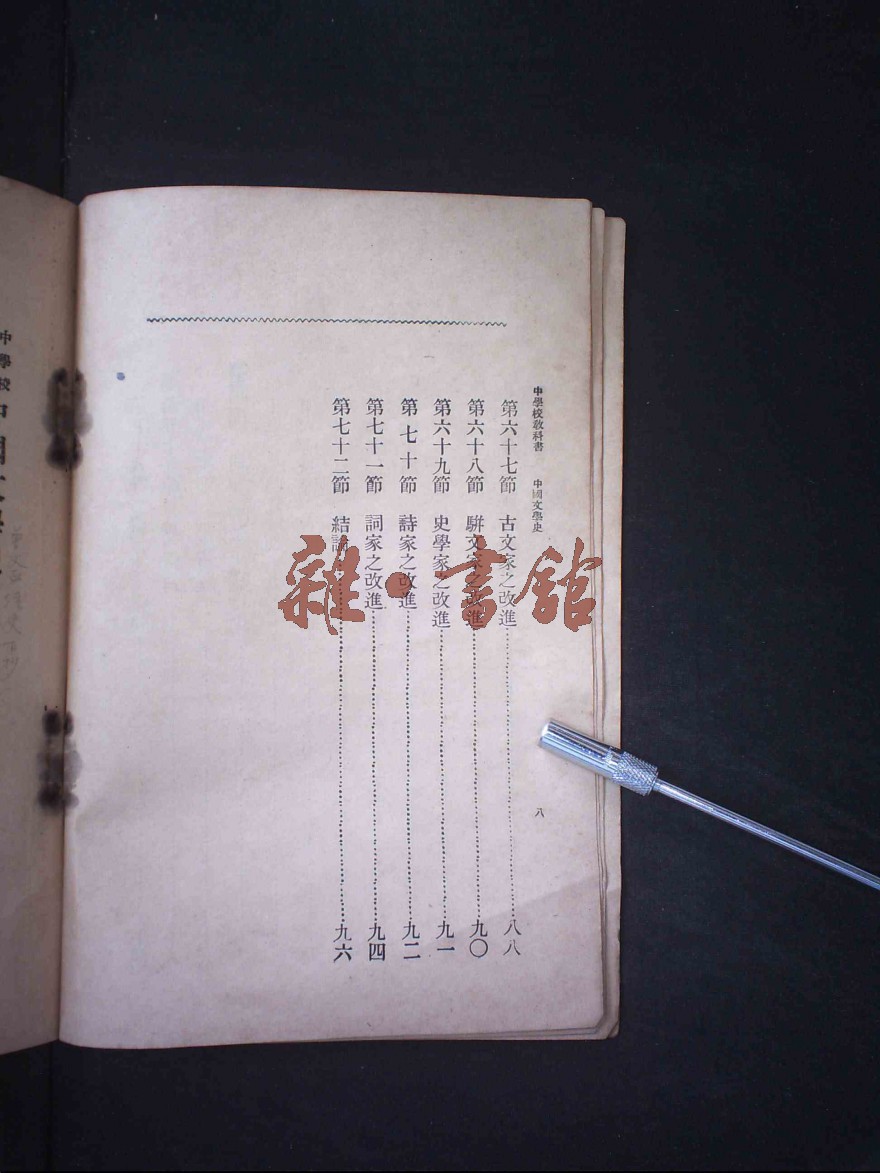 中學校教科書　中國文學史
八
第六十七節　古文家之改進……八八
第六十八節　駢文家之改進……九〇
第六十九節　史學家之改進……九一
第七十節　詩家之改進……九二
第七十一節　詞家之改進……九四
第七十二節　結論……九六
雜·書館
中學校